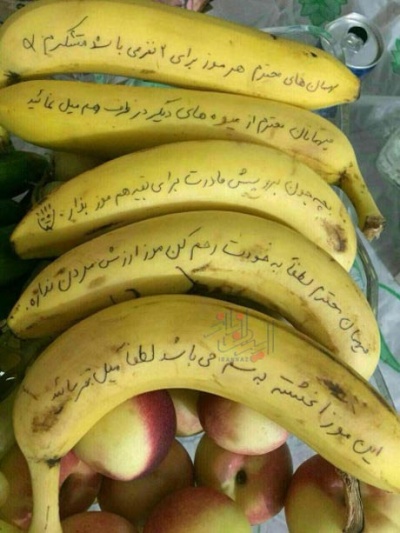 مهمان‌های محترم هر موز برای ۲ نفر می باشد متشکرم
میهمانان محترم از میوه های دیگر در ظرف هم میل نمائید
بچه جون برو پیش مادرت برای بقیه هم موز بذار
میهمان محترم لطفاً به خودت رحم کن موز ارزش مردن نداره
این موز آغشته به سم می باشد لطفاً میل نفرمائید